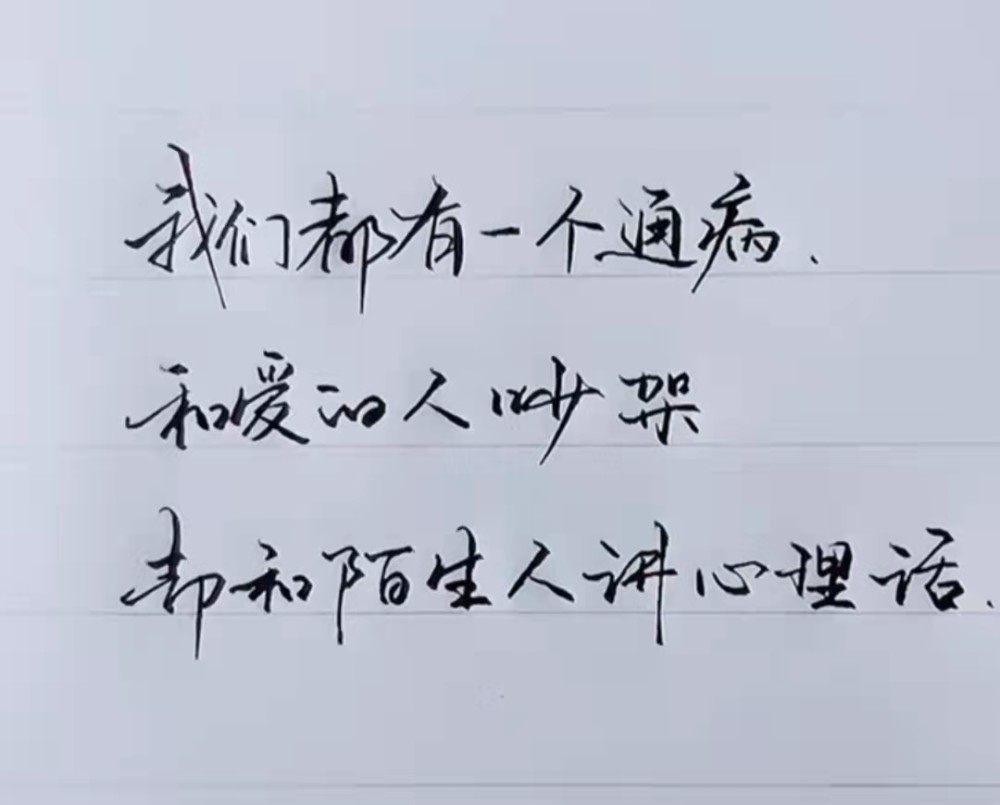 我们都有一个通病、
和爱的人吵架
却和陌生人讲心理话、